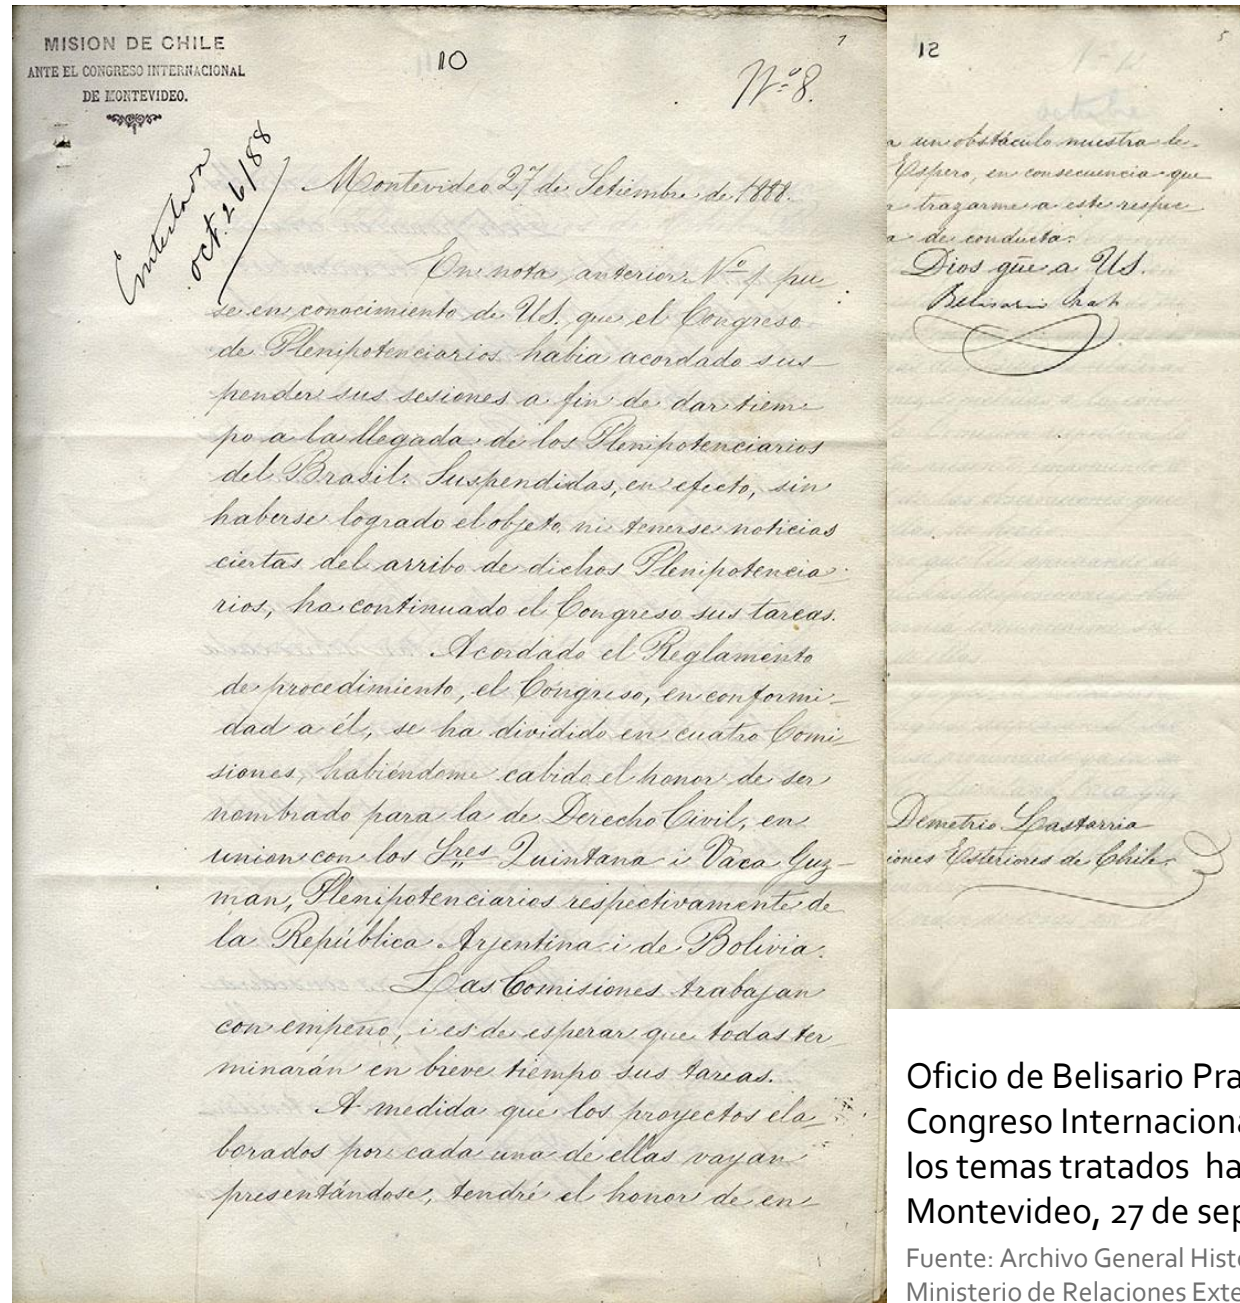 MISION DE CHILE
ANTE EL CONGRESO INTERNACIONAL
DE MONTEVIDEO.
10
7
Nº 8.
oct. 26/88
Montevideo 27 de Setiembre de 1888.
En nota anterior Nº 7 pu
se en conocimiento de US. que el Congreso
de Plenipotenciarios habia acordado sus
pender sus sesiones a fin de dar tiem
po a la llegada de los Plenipotenciarios
del Brasil. Suspendidas, en efecto, sin
haberse logrado el objeto, ni tenerse noticias
ciertas del arribo de dichos Plenipotencia
rios, ha continuado el Congreso sus tareas.
Acordado el Reglamento
de procedimiento, el Congreso, en conformi-
dad a él, se ha dividido en cuatro Comi
siones, habiéndome cabido el honor de ser
nombrado para la de Derecho Civil, en
union con los Sres Quintana i Vaca Guz-
man, Plenipotenciarios respectivamente de
la República Arjentina i de Bolivia.
Las Comisiones trabajan
con empeño, i es de esperar que todas ter
minarán en breve tiempo sus tareas.
A medida que los proyectos ela
borados por cada una de ellas vayan
presentándose, tendré el honor de en
12
5
a un obstáculo nuestra le-
Espero, en consecuencia que
trazarme a este respec
a de conducta.
Dios gûe a US.
Belisario Prats
Demetrio Lastarria
iones Esteriores de Chile
Oficio de Belisario Pra
Congreso Internaciona
los temas tratados ha
Montevideo, 27 de sep
Fuente: Archivo General Histó
Ministerio de Relaciones Exte